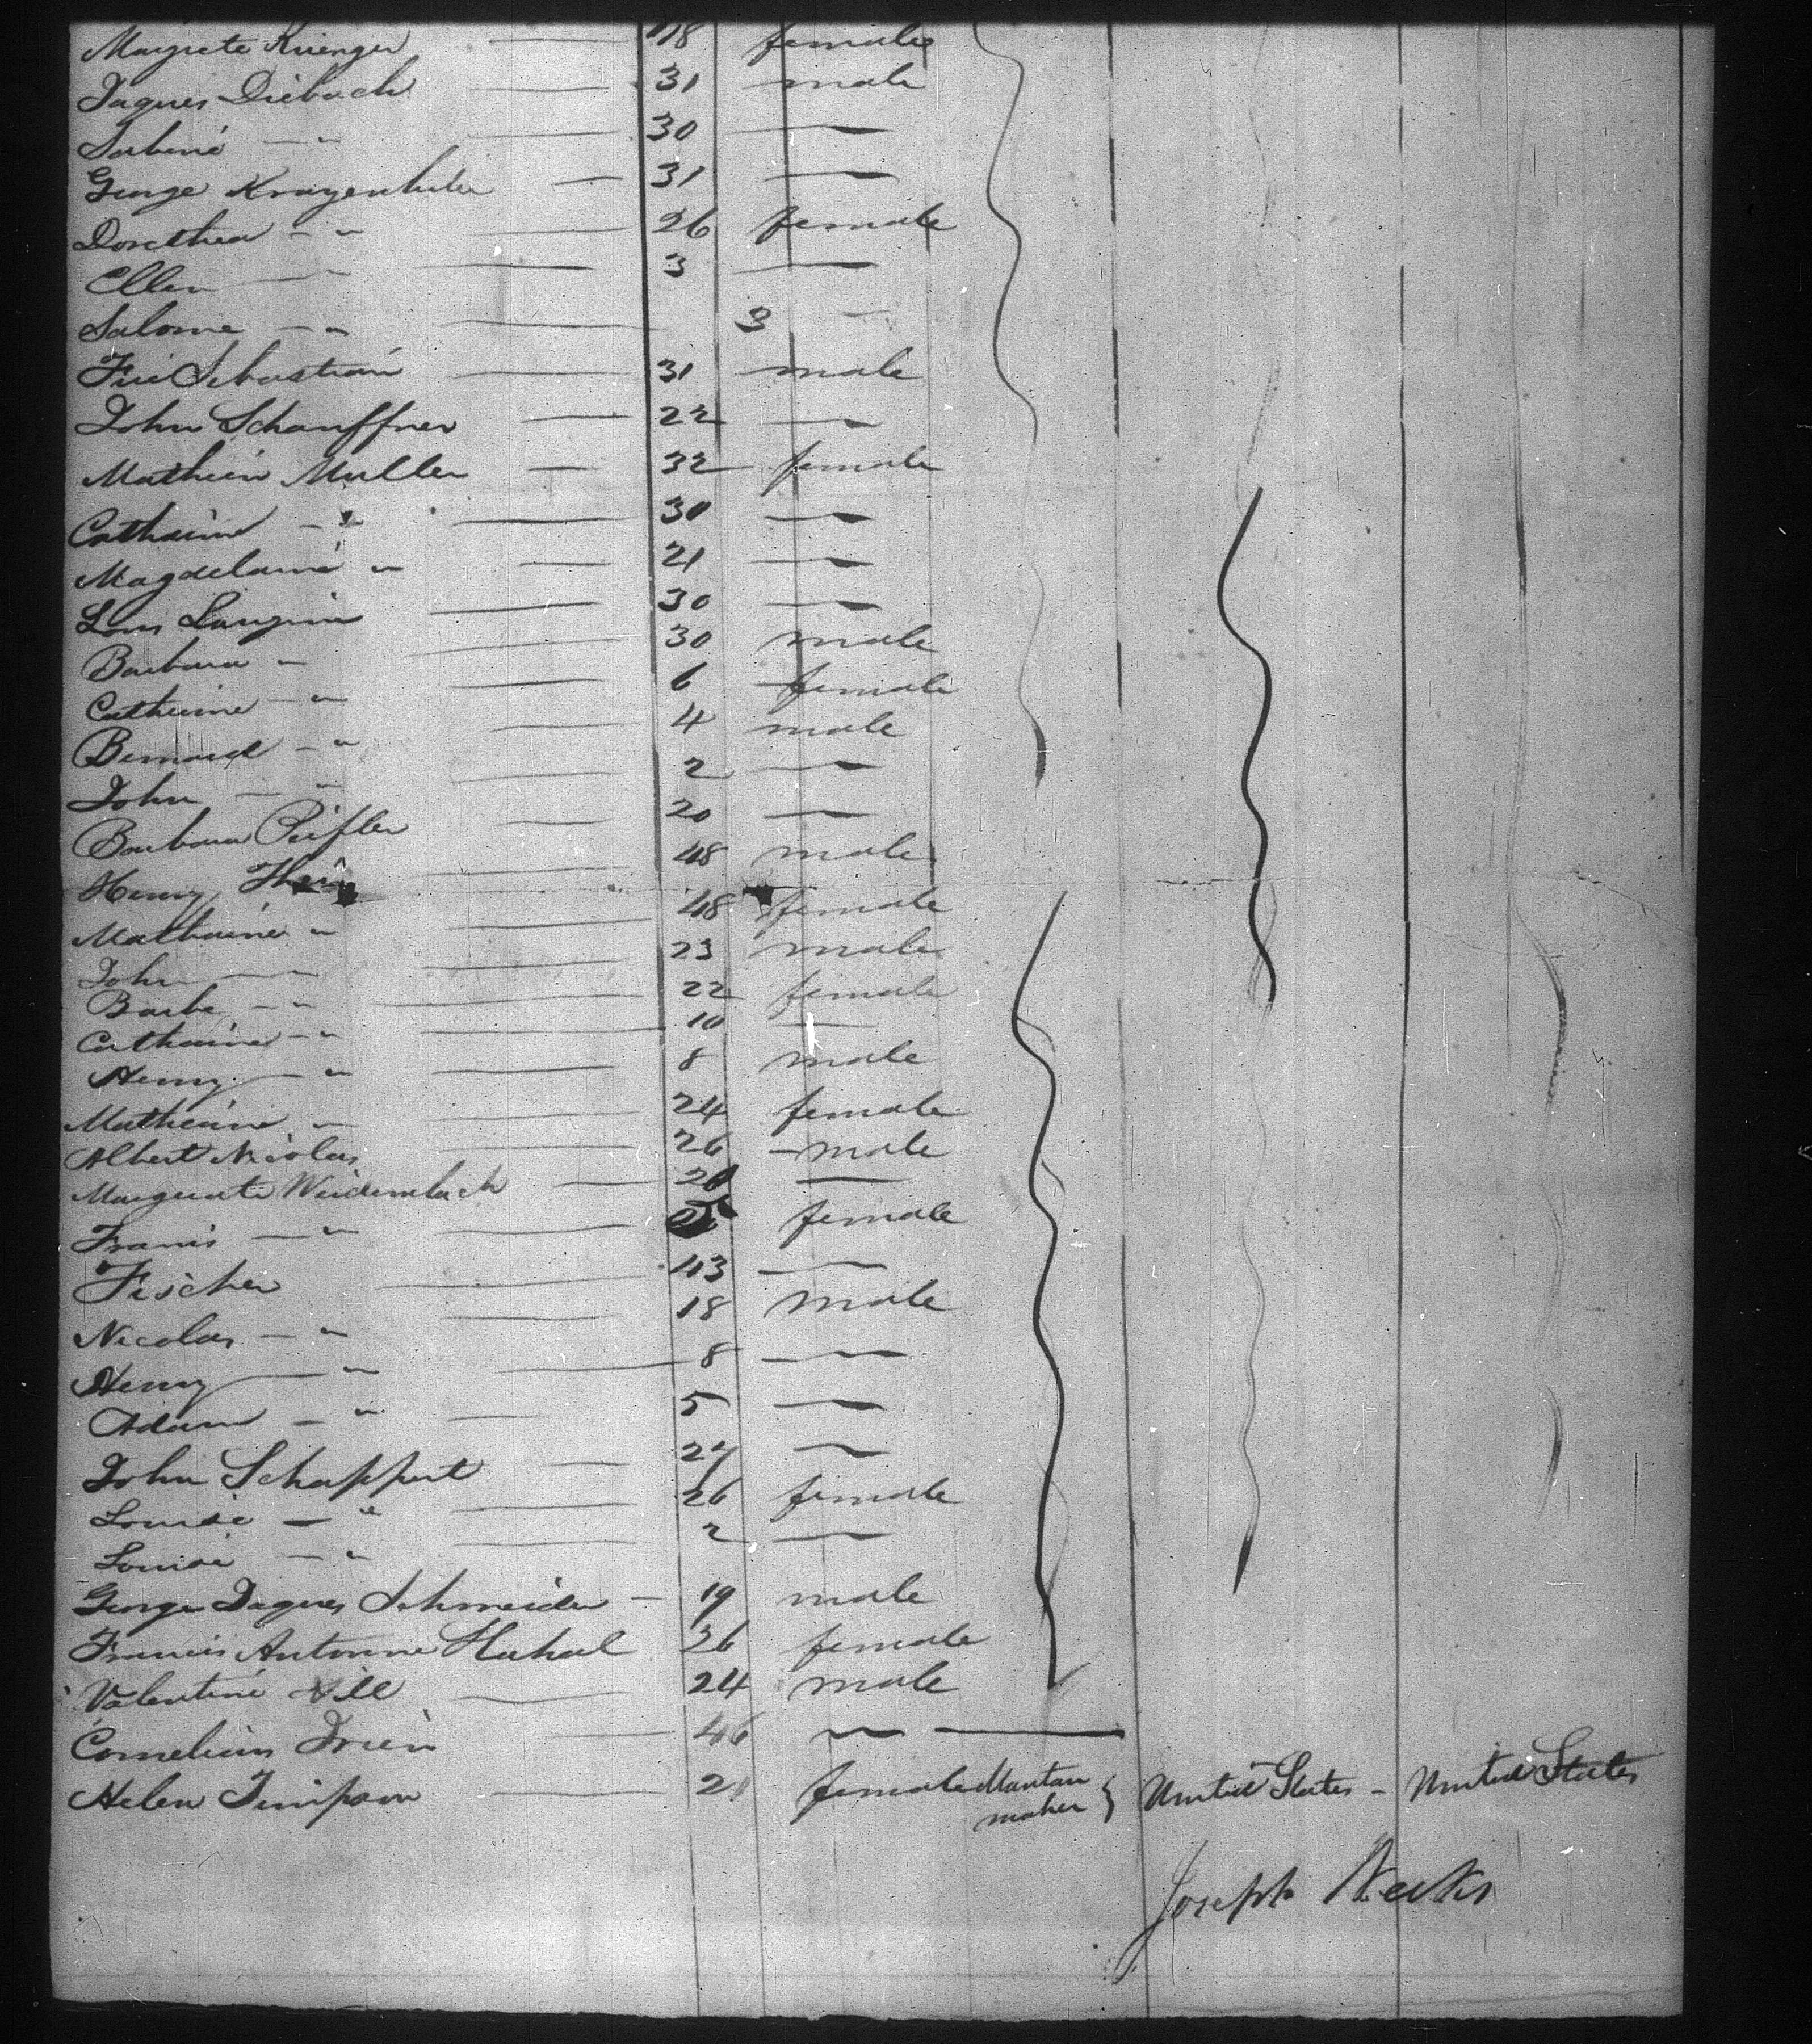 Margrete Krienger — 18 female
Jaques Diebach — 31 male
Sabine — " — 30 —
George Krayenbuler — 31 —
Dorethea — " — 26 female
Ellen — " — 3 —
Salome — " — 3 —
Sebastian — 31 male
John Schauffner — 22 —
Mathieu Muller — 32 female
Catharine — " — 30 —
Magdelaine " — 21 —
Louis — 30 —
Barbara " — 30 male
Catherine — " — 6 female
Bernard — " — 4 male
John — " — 2 —
Barbara — 20 —
Henry — 48 male
Matharine " — 48 female
John — " — 23 male
Barbe — " — 22 female
Catharine — " — 10 —
Henry — " — 8 male
Matherine " — 24 female
Albert Nicolas — 26 – male
Marguerite Weidenbach — 20 —
Francis — " — female
Fischer — 43 —
Nicolas — " — 18 male
Henry — " — 8 —
Adam — " — 5 —
John Schappert — 27 —
Louise — " — 26 female
Louise — " — 2 —
George Jaques Schneider — 19 male
Francis Antoine 36 female
Valentine — 24 male
Cornelius — 46 —
Helen Timpson — 21 female Mantau maker } United States – United States
Joseph Weeks